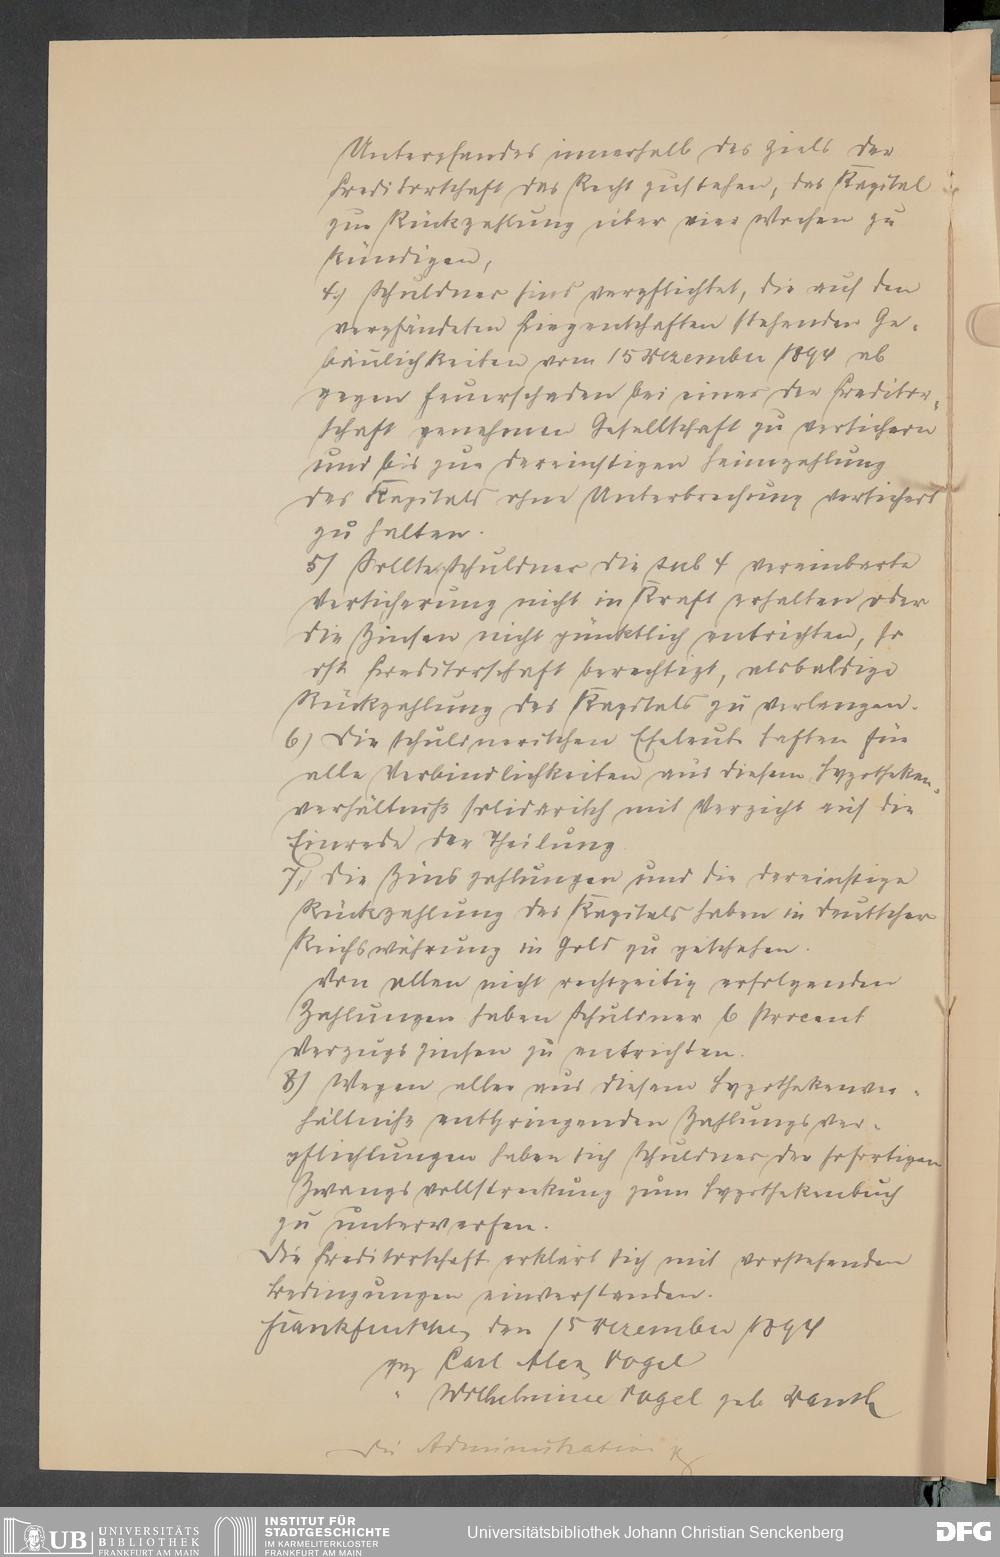 Unterpfandes innerhalb des Ziels der
Creditorschaft das Recht zustehen, das Kapital
zur Rückzahlung über vier Wochen zu
kündigen,
4.) Schuldner sind verpflichtet, die auf den
verpfändeten Liegenschaften stehenden Ge-
bäulichkeiten vom 15 Dezember 1894 ab
gegen Feuerschaden bei einer der Creditor-
schaft genehmen Gesellschaft zu versichern
und bis zur dereinstigen Heimzahlung
des Kapitals ohne Unterbrechung versichert
zu halten.
5) Sollte Schuldner die sub 4 vereinbarte
Versicherung nicht in Kraft erhalten oder
die Zinsen nicht pünktlich entrichten, so
ist Creditorschaft berechtigt, alsbaldige
Rückzahlung des Kapitals zu verlangen.
6) Die schuldnerischen Eheleute haften für
alle Verbindlichkeiten aus diesem Hypotheken-
verhältniß solidarisch mit Verzicht auf die
Einrede der Theilung
7.) Die Zinszahlungen und die dereinstige
Rückzahlung des Kapitals haben in deutscher
Reichswährung in Gold zu geschehen.
Von allen nicht rechtzeitig erfolgenden
Zahlungen haben Schuldner 6 Procent
Verzugszinsen zu entrichten.
8) Wegen aller aus diesem Hypothekenver-
hältniß entspringenden Zahlungsver-
pflichtungen haben sich Schuldner der sofortigen
Zwangsvollstreckung zum Hypothekenbuch
zu unterwerfen.
Die Creditorschaft erklärt sich mit vorstehenden
Bedingungen einverstanden.
Frankfurt den 15 Dezember 1894
gez Carl Alex Vogel
" Wilhelmine Vogel geb
Die Administration
UB UNIVERSITÄTS
BIBLIOTHEK
FRANKFURT AM MAIN
INSTITUT FÜR
STADTGESCHICHTE
IM KARMELITERKLOSTER
FRANKFURT AM MAIN
Universitätsbibliothek Johann Christian Senckenberg
DFG